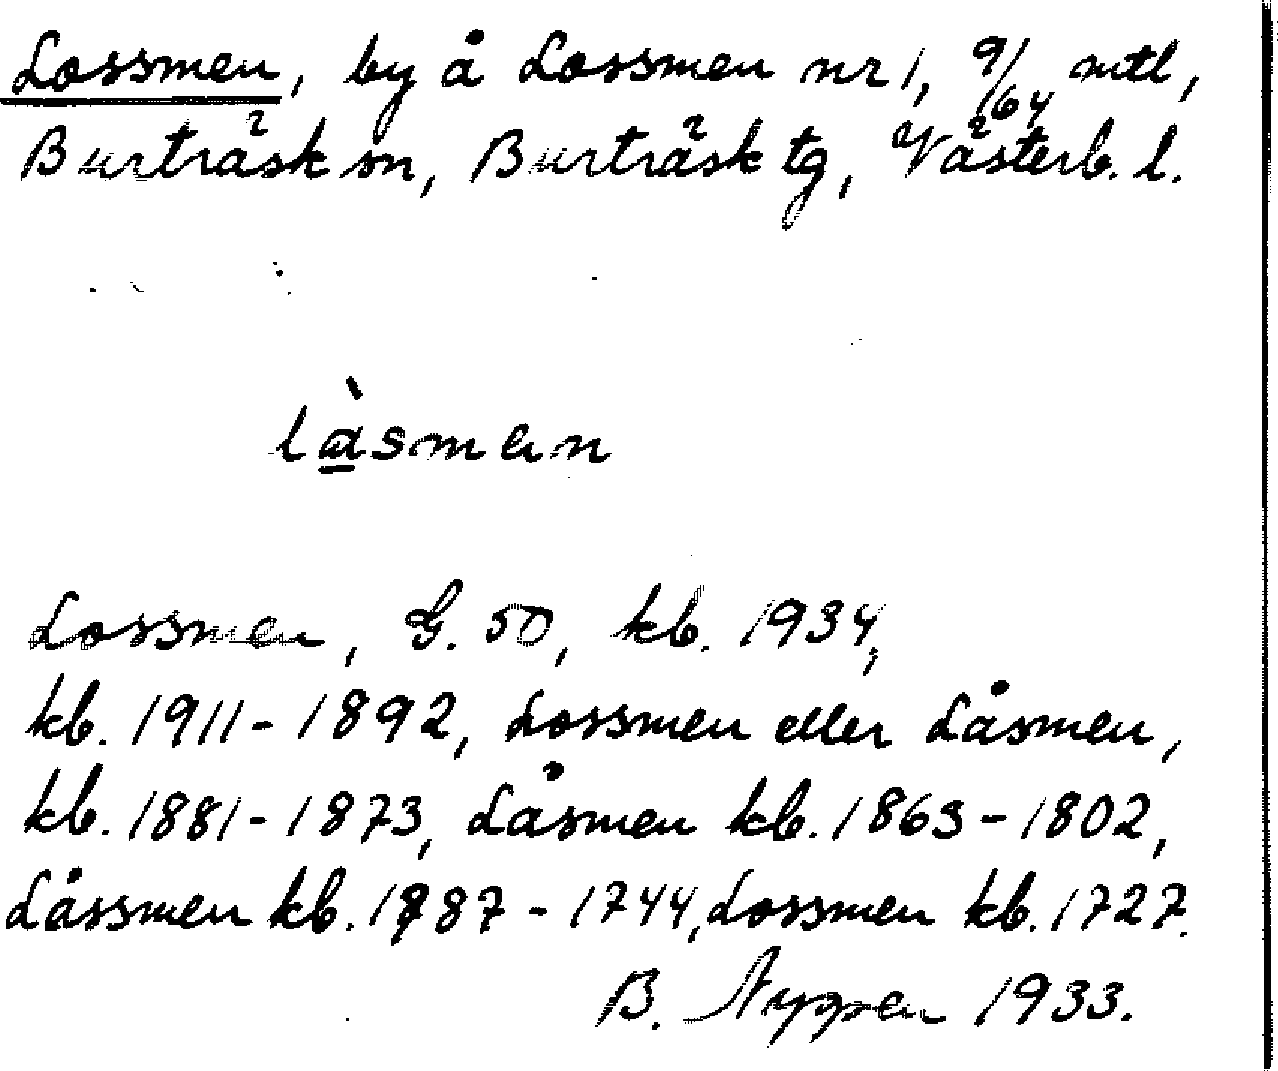 Lossmen, by å Lossmen nr 1, 9/64 mtl,
Burträsk sn, Burträsk tg, Västerb. l.
låsmen
Lossmen, G. 50, kb. 1934,
kb. 1911-1892, Lossmen eller Låsmen,
kb. 1881-1873, Låsmen kb. 1863-1802,
Låssmen kb. 1787-1744, Lossmen kb. 1727.
B. 1933.